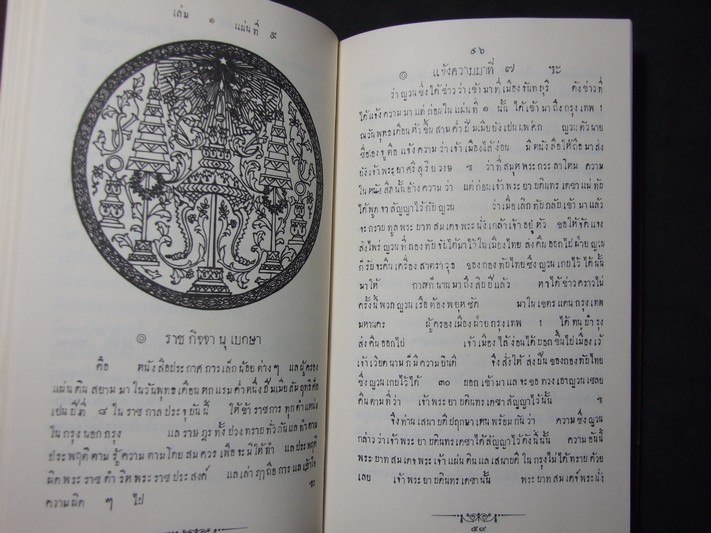 เล่ม ๑ แผ่นที่ ๙
๏ ราช กิจจา นุ เบกษา
คือ หนังสือประกาศ การเล็กน้อย ต่างๆ แลผู้ครอง
แผ่นดิน สยาม มา ในวันพุทธ เดือนหก แรมค่ำหนึ่ง ปีมเมีย สัมฤทธิศก
เปน ปีที่ ๘ ใน ราช กาล ประจุ บัน นี้ ให้ ข้า ราช การ ทุก ตำแหน่ง
ใน กรุง นอก กรุง แล ราษฎร ทั้ง ปวง ทราบ ทั่ว กัน แล ทำ ตาม
ประพฤติ ตาม รู้ ความ ตาม โดย สม ควร เพื่อ จะ มิ ให้ ทำ แล ประพฤติ
ผิด พระ ราช ดำ ริห พระ ราช ประสงค์ แล เล่า ฦๅ ถือ การ แล เข้าใจ
ความ ผิด ๆ ไป ฯะ
๙๖
๏ แจ้งความมาที่ ๗ ฯะ
ว่า ญวน ซึ่ง ได้ ข่าว ว่า เข้า มา ที่ เมือง จันทบุรี ดัง ข่าว ที่
ได้ แจ้ง ความ มา แต่ ก่อน ใน แผ่น ที่ ๑ นั้น ได้ เข้า มา ถึง กรุง เทพ ฯ
ญวน ตัว นาย
แจ้ง ความ ว่า เจ้า เมือง ไซ่ ง่อน มี หนังสือ ให้ ถือ มา ส่ง
ยัง เจ้า พระ ยา ศริ สุริ ย วงษ ฯ ว่า ที่ สมุห พระ กระ ลา โหม ความ
ใน หนัง สือ นั้น อ้าง ความ ว่า แต่ ก่อน เจ้า พระ ยา บดินทร เดชา แม่ ทัพ
ได้ พูด จา สัญญา ไว้ กับ ญวน ว่า เมื่อ เลิก ทัพ กลับ เข้า มา แล้ว
จะ กราบ ทูล พระ บาท สม เดจ์ พระ นั่ง เกล้า เจ้า อยู่ หัว ขอ ให้ จัด แจง
ส่ง ไพร่ ญวน ที่ กอง ทัพ จับ ได้ มา ไว้ ใน เมือง ไทย ส่ง คืน ออก ไป ฝ่าย ญวน
ก็ รับ จะ คืน เครื่อง สาตรา วุธ ของ กอง ทัพ ไทย ซึ่ง ญวน เกบ ไว้ ได้ นั้น
มา ให้ กาล ก็ นาน มา ถึง สิบ ปี แล้ว
ครั้ง นี้ พวก ญวน เรือ ต้อง พยุห ซัด มา ใน เขตร แดน กรุง เทพ
มหา นคร ผู้ ครอง เมือง ฝ่าย กรุง เทพ ฯ ได้ ทนุ บำ รุง
ส่ง คืน ออก ไป เจ้า เมือง ไซ่ ง่อน ได้ บอก ขึ้น ไป เมือง เว้
เจ้า เวียด นาม ก็ มี ความ ยินดี จึง สั่ง ให้ ส่ง ปืน ของ กอง ทัพ ไทย
ซึ่ง ญวน เกบ ไว้ ได้ ๓๐ บอก เข้า มา แล จะ ขอ ทวง เอา ญวน เชลย
คืน ตาม ที่ ว่า เจ้า พระ ยา บดินทร เดชา สัญญา ไว้ นั้น ฯ
จึง ท่าน เสนา บดี ปฤกษา เหน พร้อม กัน ว่า ความ ซึ่ง ญวน
กล่าว ว่า เจ้า พระ ยา บดินทร เดชา ได้ สัญญา ไว้ ดัง นี้ นั้น ความ อัน นี้
พระ บาท สม เดจ์ พระ เจ้า แผ่น ดิน แล เสนา บดี ใน กรุง ไม่ ได้ ทราบ ด้วย
เลย เจ้า พระ ยา บดินทร เดชา นั้น พระ บาท สม เดจ์ พระ นั่ง
๕๙